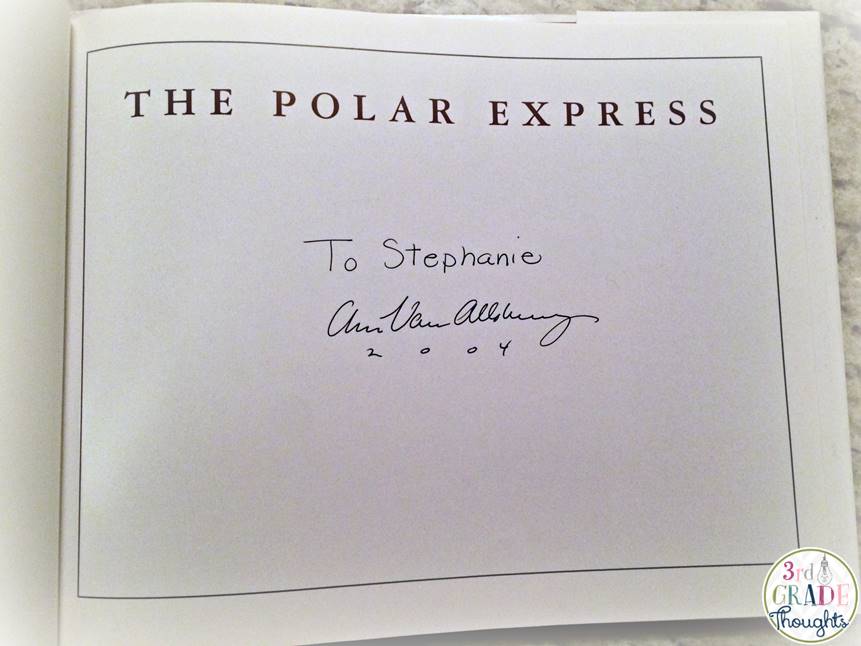 THE POLAR EXPRESS
To Stephanie
Chris Van Allsburg
2004
3rd
GRADE
Thoughts